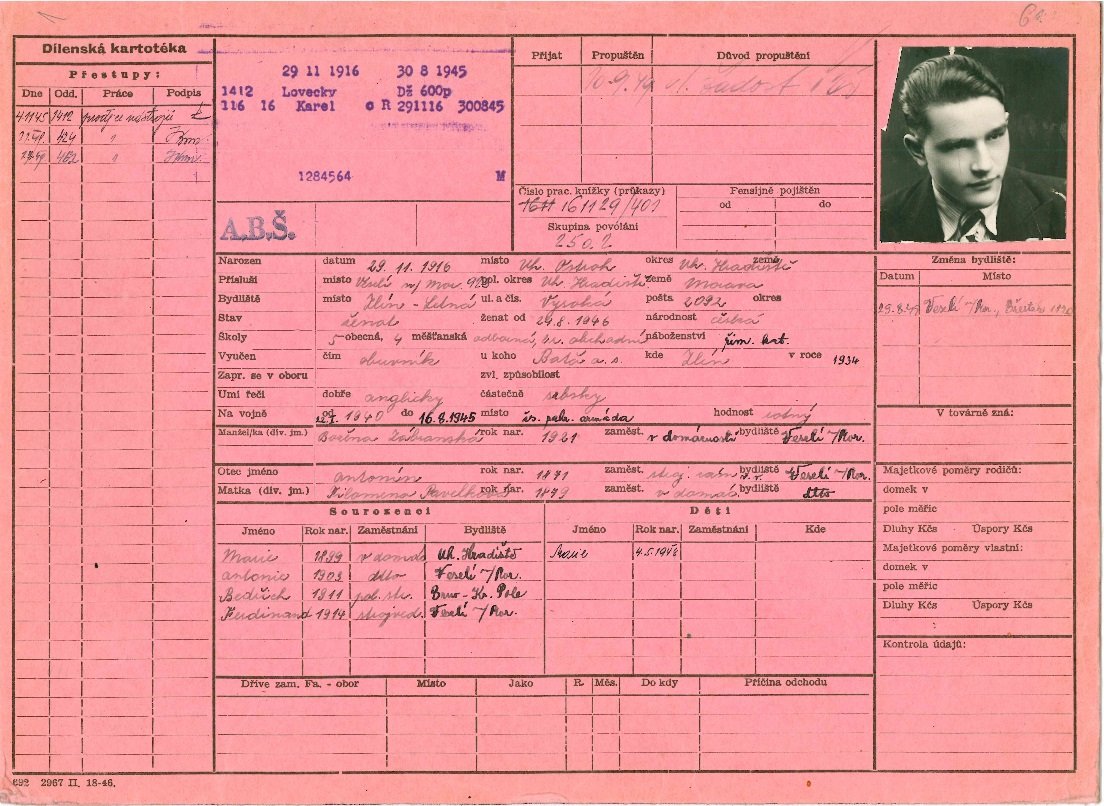 Dílenská kartotéka
Přestupy:
Dne Odd. Práce Podpis
1412
424
462
29 11 1916 30 8 1945
1412 Lovecky Dž 600p
116 16 Karel o R 291116 300845
1284564 M
A.B.Š.
Přijat Propuštěn Důvod propuštění
10.9.49
Číslo prac. knížky (průkazy)
161129/401
Skupina povolání
250.2
Fensijné pojištěn
od do
Narozen datum 29. 11. 1916 místo Uh. Ostroh okres Uh. Hradiště země
Přísluší místo Veselí n/Mor. pol. okres Uh. Hradiště země Morava
Bydliště místo Zlín - Letná ul. a čís. Vysoká pošta 2092 okres
Stav ženat ženat od 24.8. 1946 národnost česká
Školy 5 obecná, 4 měšťanská odborná, obchodní náboženství řím. kat.
Vyučen čím obuvník u koho Baťa a. s. kde Zlín v roce 1934
Zapr. se v oboru zvl. způsobilost
Umí řeči dobře anglicky částečně srbsky
Na vojně od 1940 do 16.8.1945 místo čs. armáda hodnost rotný
Manžel/ka (div. jm.) rok nar. 1921 zaměst. v domácnosti bydliště Veselí n/Mor.
Otec jméno Antonín rok nar. 1871 zaměst. bydliště Veselí n/Mor.
Matka (div. jm.) Filomena Pavelková rok nar. 1879 zaměst. v domác. bydliště dtto
Sourozenci
Jméno Rok nar. Zaměstnání Bydliště
Marie 1899 v domác. Uh. Hradiště
Antonie dtto Veselí n/Mor.
Bedřich 1911 pol. str. Brno - Kr. Pole
Ferdinand 1914 strojved. Veselí n/Mor.
Děti
Jméno Rok nar. Zaměstnání Kde
Marie 4.5.1948
Dříve zam. Fa. - obor Místo Jako R. Měs. Do kdy Příčina odchodu
Změna bydliště:
Datum Místo
Veselí n/Mor.,
V továrně zná:
Majetkové poměry rodičů:
domek v
pole měřic
Dluhy Kčs Úspory Kčs
Majetkové poměry vlastní:
domek v
pole měřic
Dluhy Kčs Úspory Kčs
Kontrola údajů:
692 2967 II. 18-46.